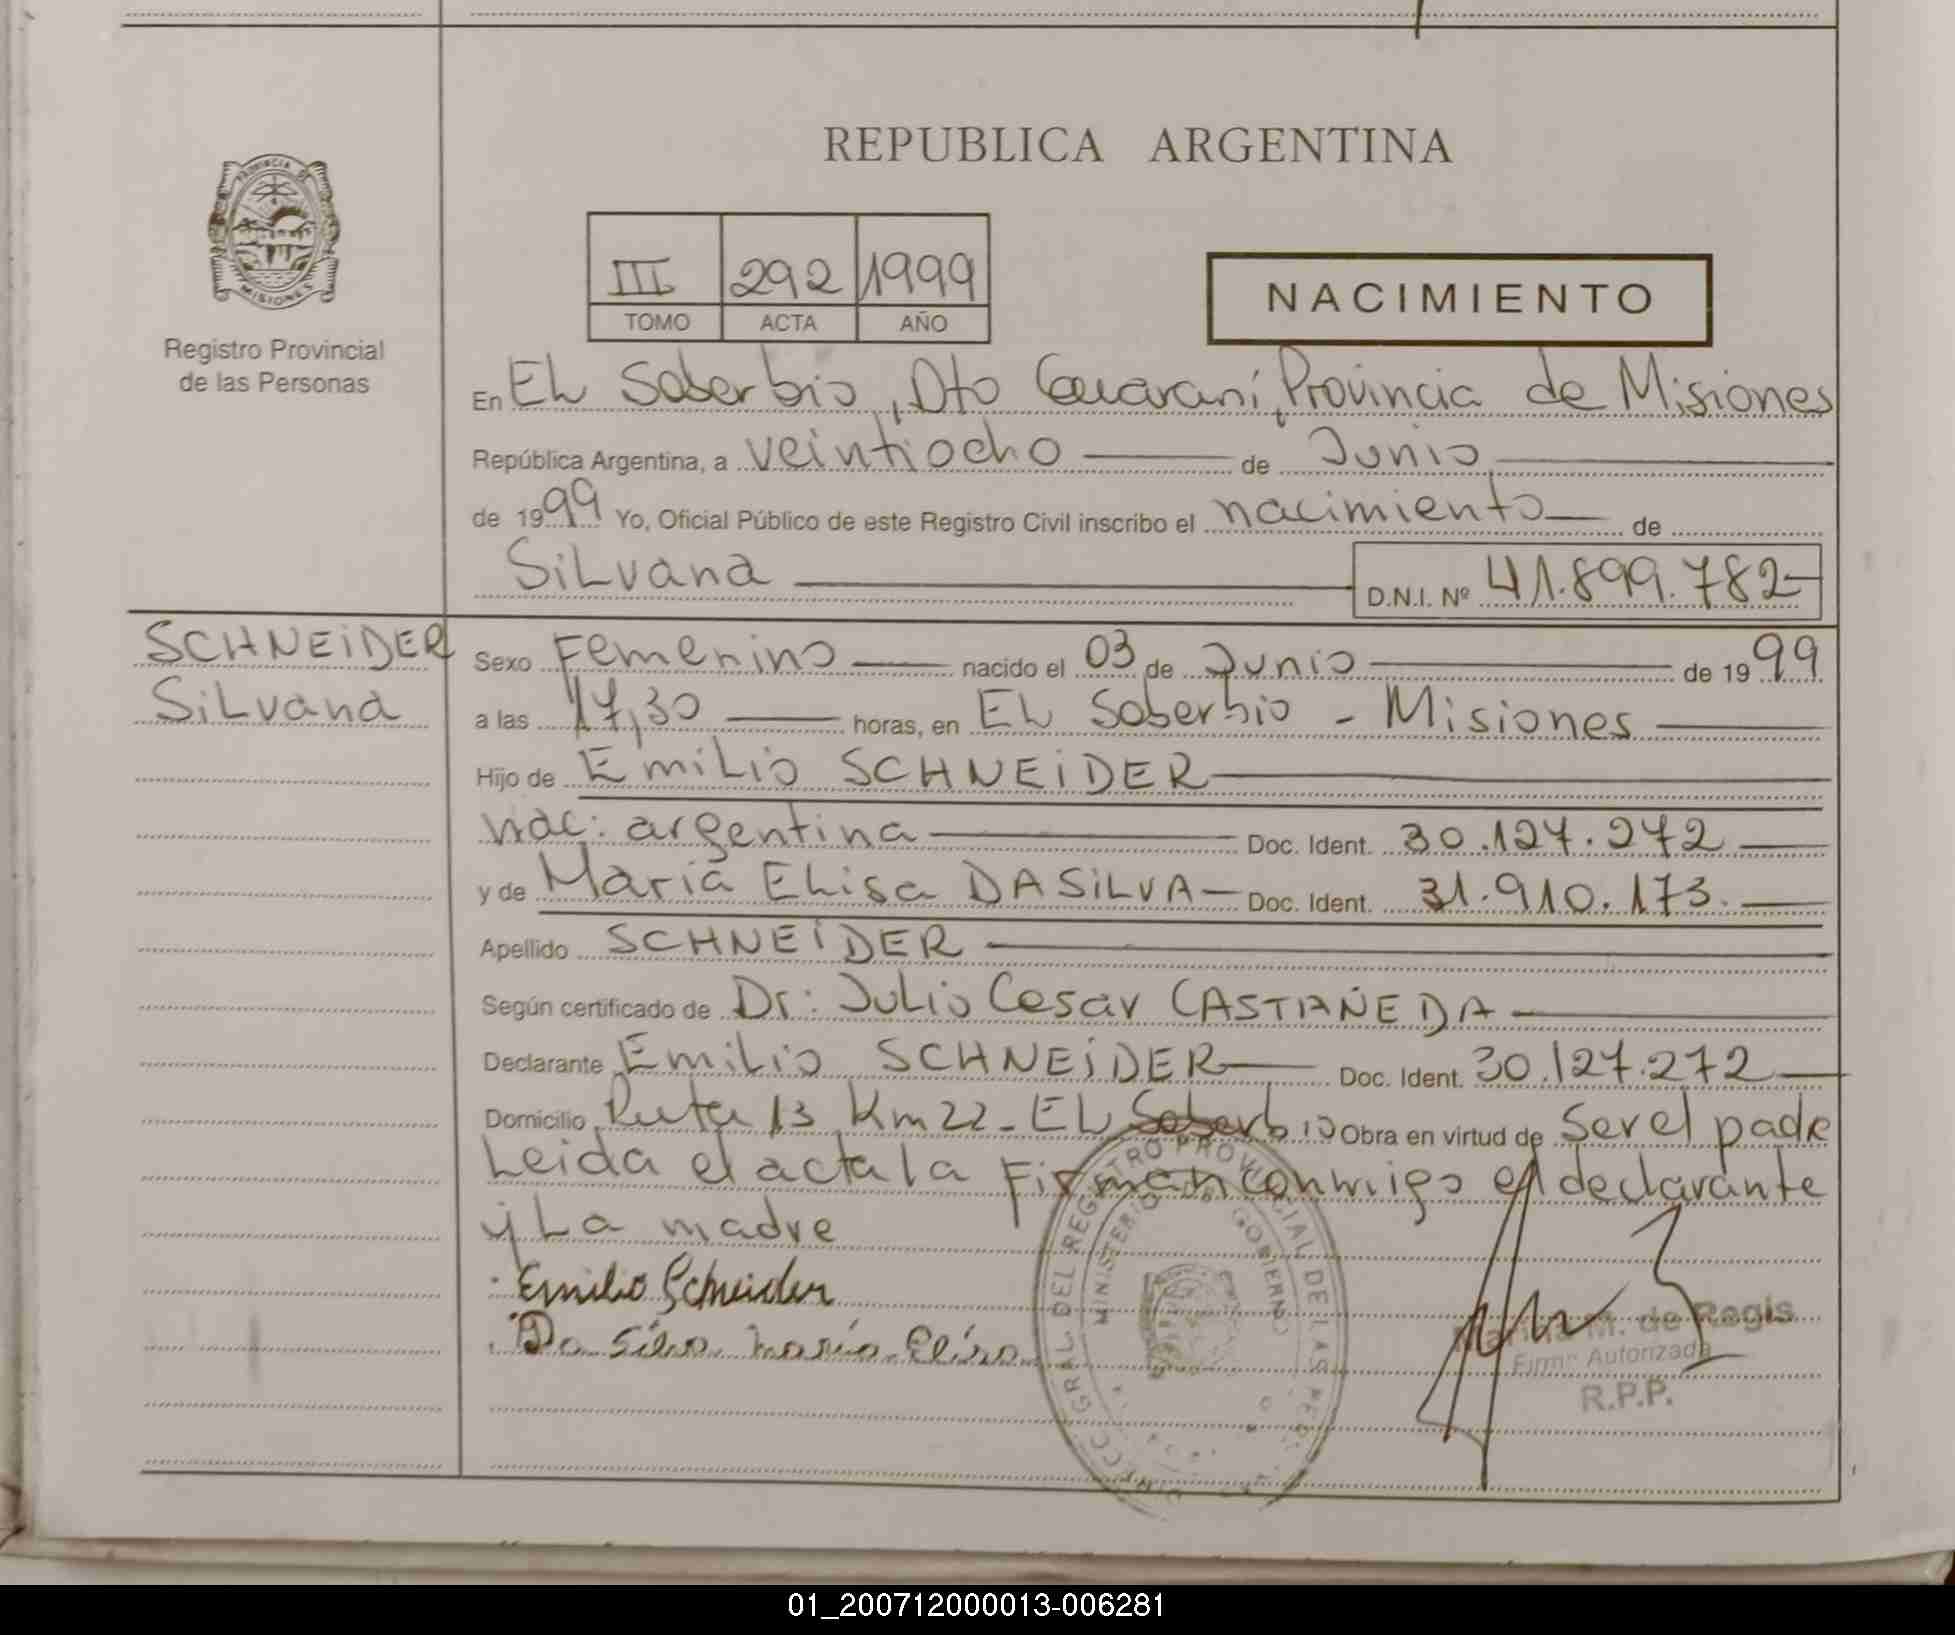 REPUBLICA ARGENTINA
PROVINCIA DE
MISIONES
Registro Provincial
de las Personas
III 292 1999
TOMO ACTA AÑO
NACIMIENTO
En EL Soberbio, Dto Guaraní, Provincia de Misiones
República Argentina, a veintiocho de Junio
de 1999 Yo, Oficial Público de este Registro Civil inscribo el nacimiento de
SiLvana D.N.I. Nº 41.899.782
SCHNEiDER
SiLvana
Sexo Femenino nacido el 03 de Junio de 1999
a las 17,30 horas, en EL Soberbio - Misiones
Hijo de EmiLio SCHNEiDER
nac: argentina Doc. Ident. 30.127.272
y de María ELisa DA SiLVA Doc. Ident. 31.910.173.
Apellido SCHNEiDER
Según certificado de Dr: JuLio Cesar CASTAÑEDA
Declarante EmiLio SCHNEiDER Doc. Ident. 30.127.272
Domicilio Ruta 13 Km 22 - EL Soberbio Obra en virtud de Ser el padre
Leida el acta la Firman conmigo el declarante
y La madre
Emilio Schneider
Da Silva María Elisa
GRAL DEL REGISTRO PROVINCIAL DE LAS
MINISTERIO DE GOBIERNO
M. de Regis
Firma Autorizada
R.P.P.
01_200712000013-006281